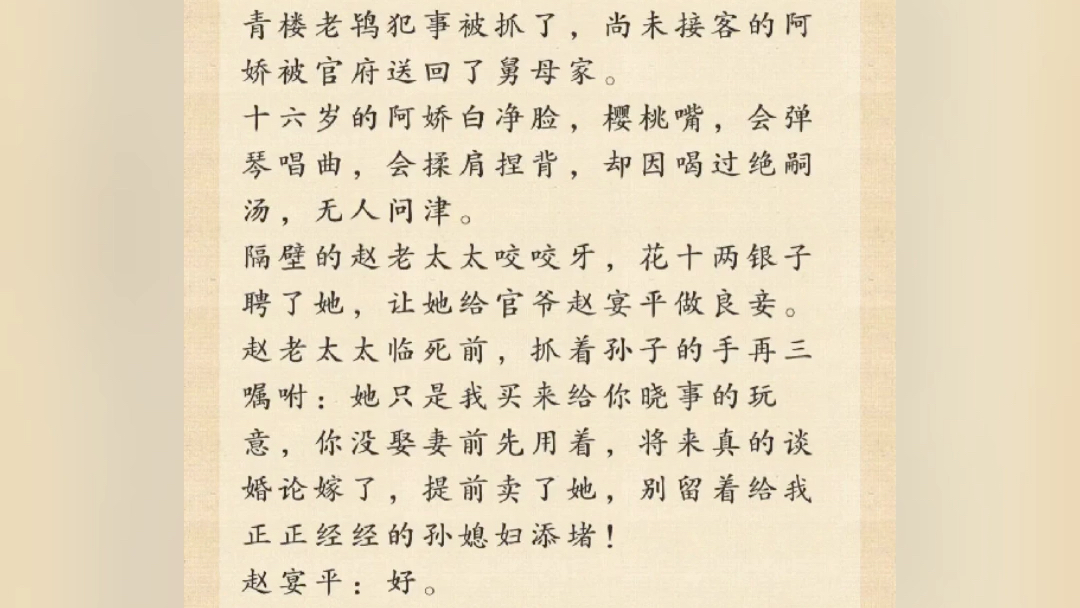 青楼老鸨犯事被抓了，尚未接客的阿
娇被官府送回了舅母家。
十六岁的阿娇白净脸，樱桃嘴，会弹
琴唱曲，会揉肩捏背，却因喝过绝嗣
汤，无人问津。
隔壁的赵老太太咬咬牙，花十两银子
聘了她，让她给官爷赵宴平做良妾。
赵老太太临死前，抓着孙子的手再三
嘱咐：她只是我买来给你晓事的玩
意，你没娶妻前先用着，将来真的谈
婚论嫁了，提前卖了她，别留着给我
正正经经的孙媳妇添堵！
赵宴平：好。